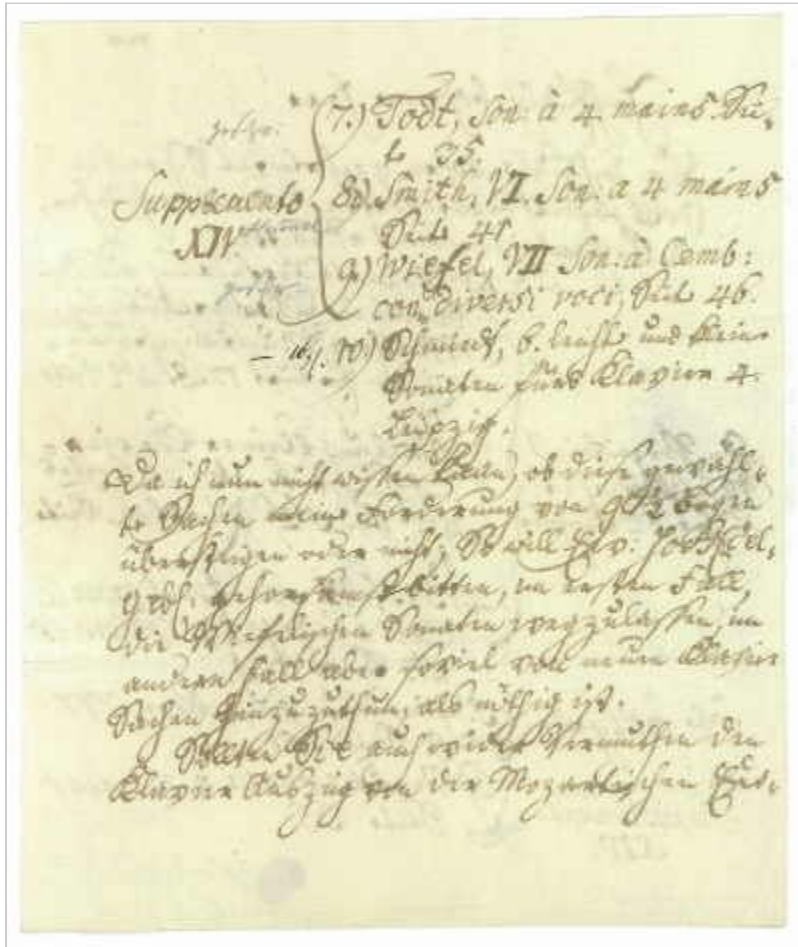 7.) Todt, Son. à 4 mains. Sei-
te 35.
Supplemento 8.) Smith, VI. Son. a 4 mains
XIV Seite 41
9.) Wiefel, VII Son: à Cemb:
con diversi voci, Seite 46.
10.) Schmidt, 6. leichte und kleine
Sonaten fürs Klavier 4.
Leipzig.
Da ich nun nicht wissen kann, ob diese gewähl-
te Sachen meine Forderung von Bogen
übersteigen oder nicht; So will Ew. HochEdel-
geb. gehorsamst bitten, im ersten Fall,
die Sonaten wegzulassen, im
andern Fall aber soviel von neuen Klavier
Sachen hinzuzuthun, als nöthig ist.
Sollten Sie auch wider Vermuthen den
Klavier Auszug von der Mozartischen